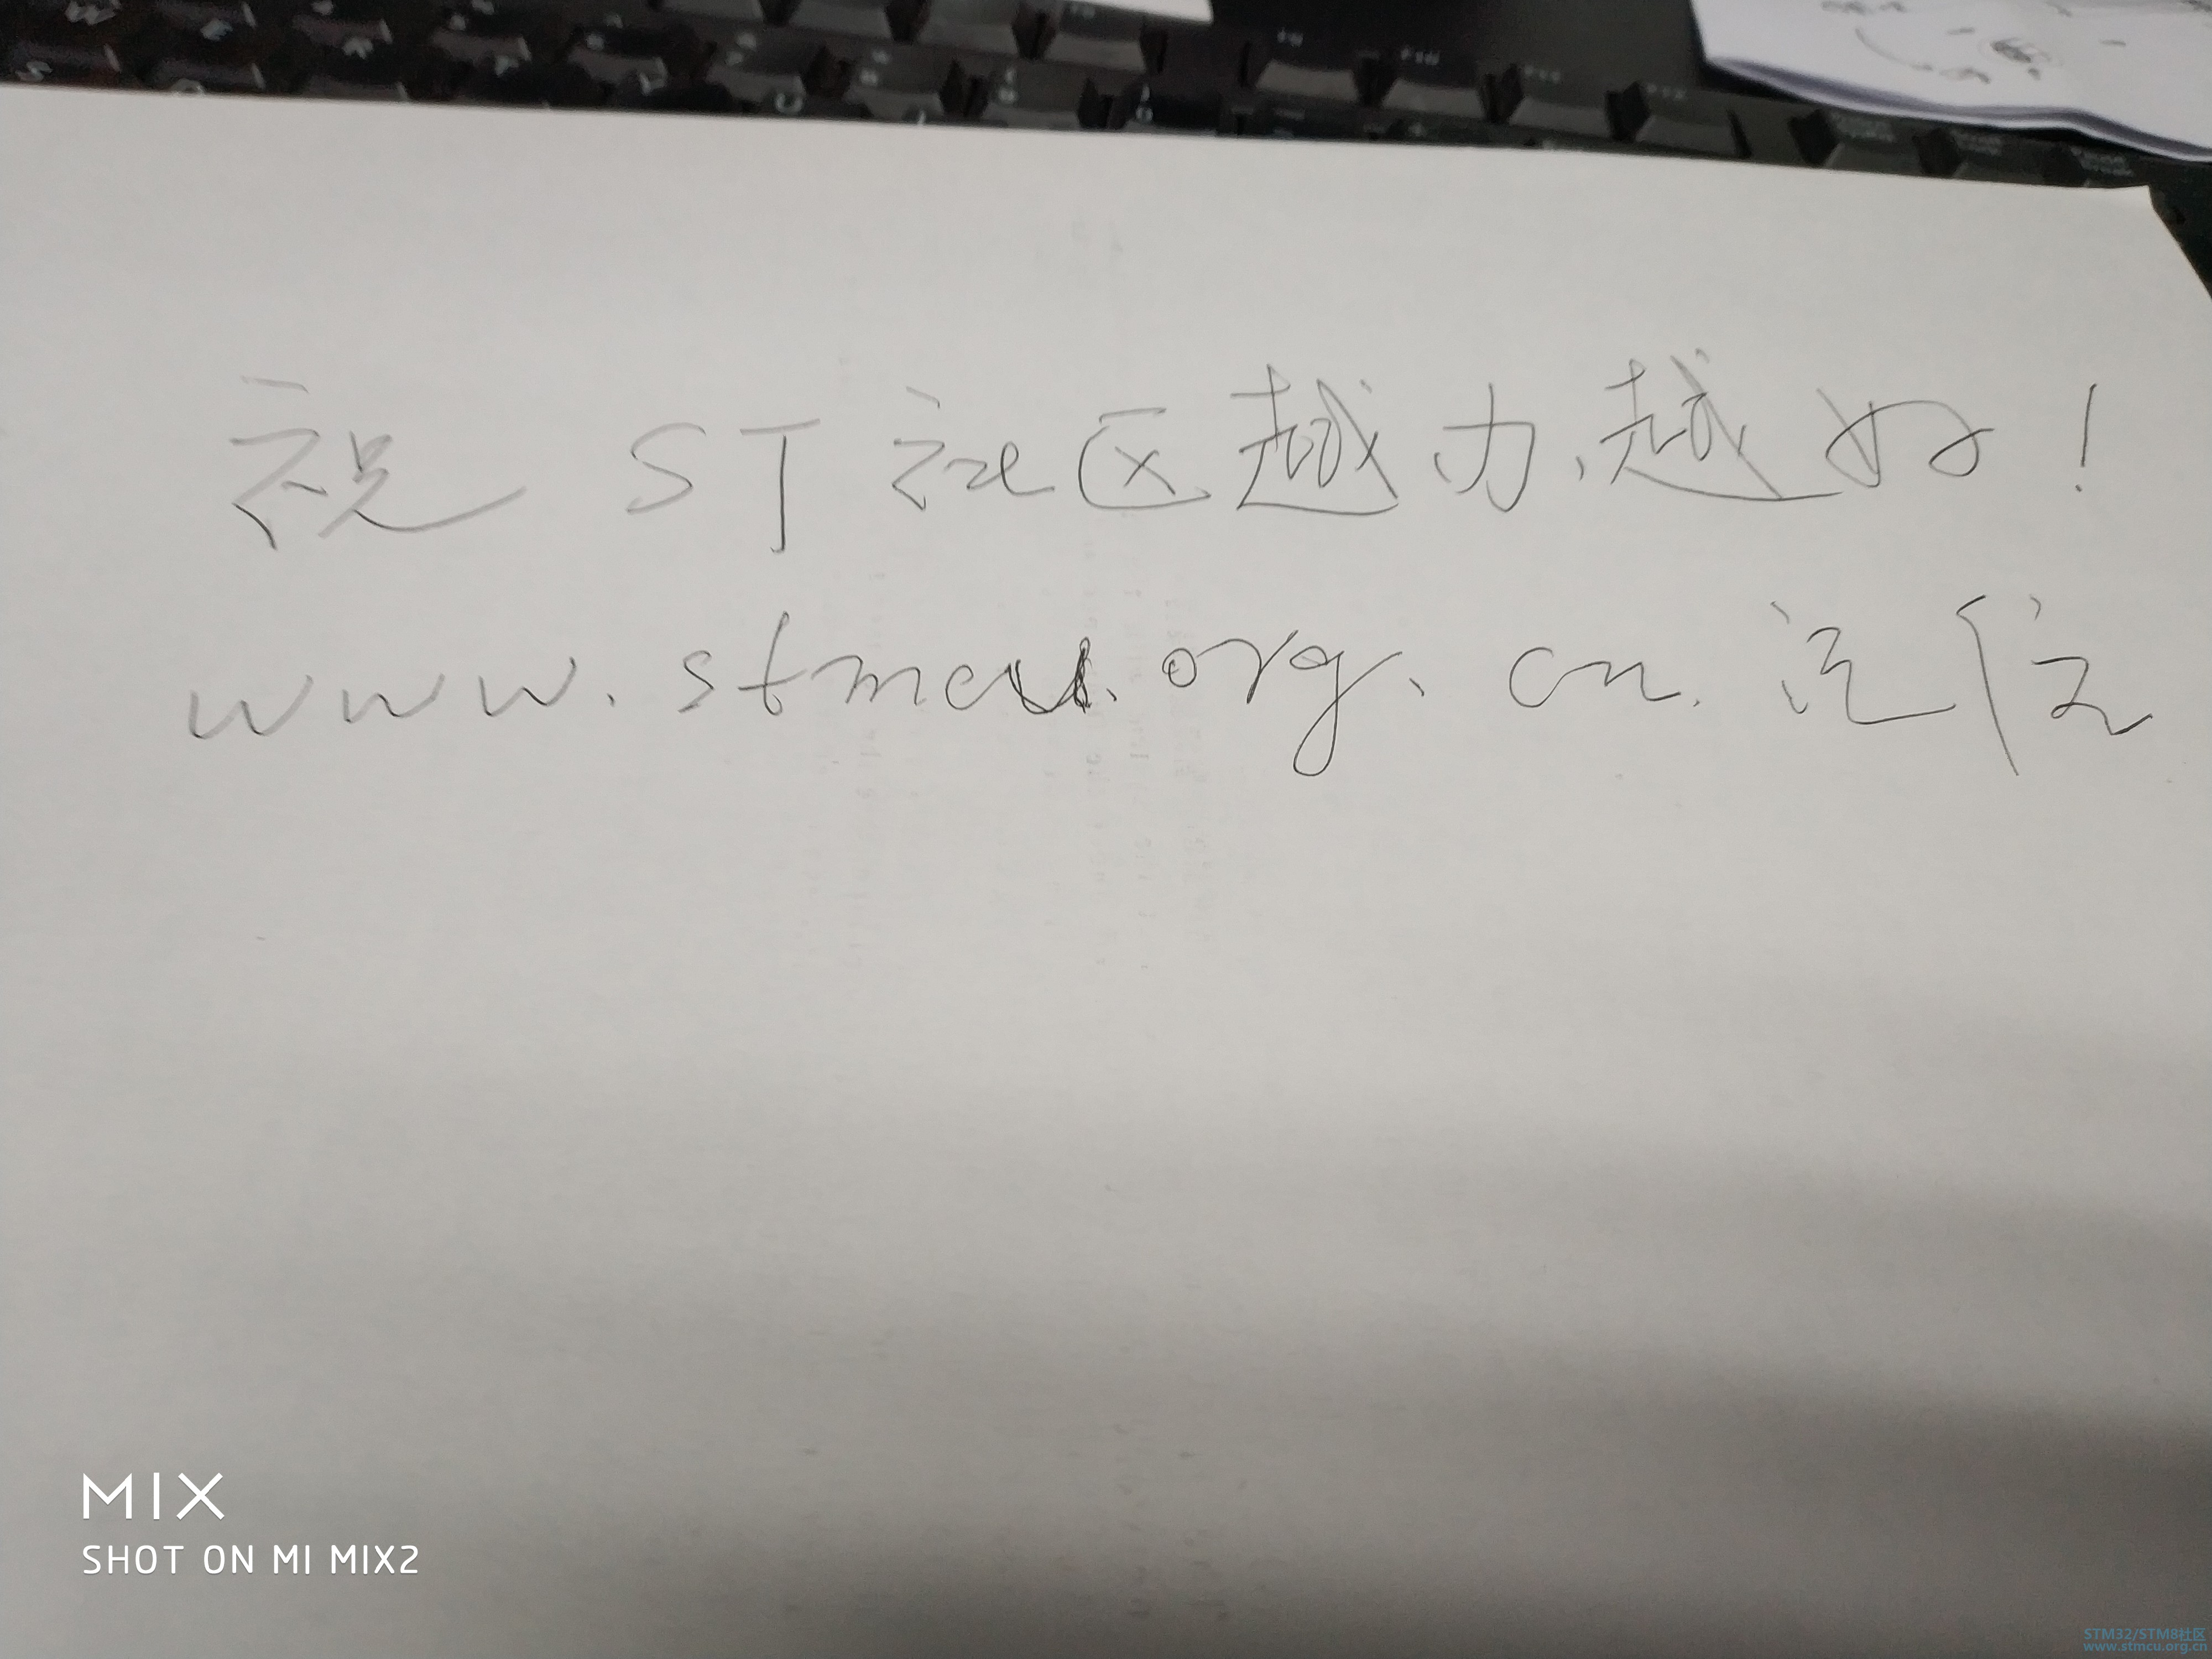 祝 ST 社区越办越好!
www.stmcu.org.cn. 论坛
MIX
SHOT ON MI MIX2
STM32/STM8社区
www.stmcu.org.cn